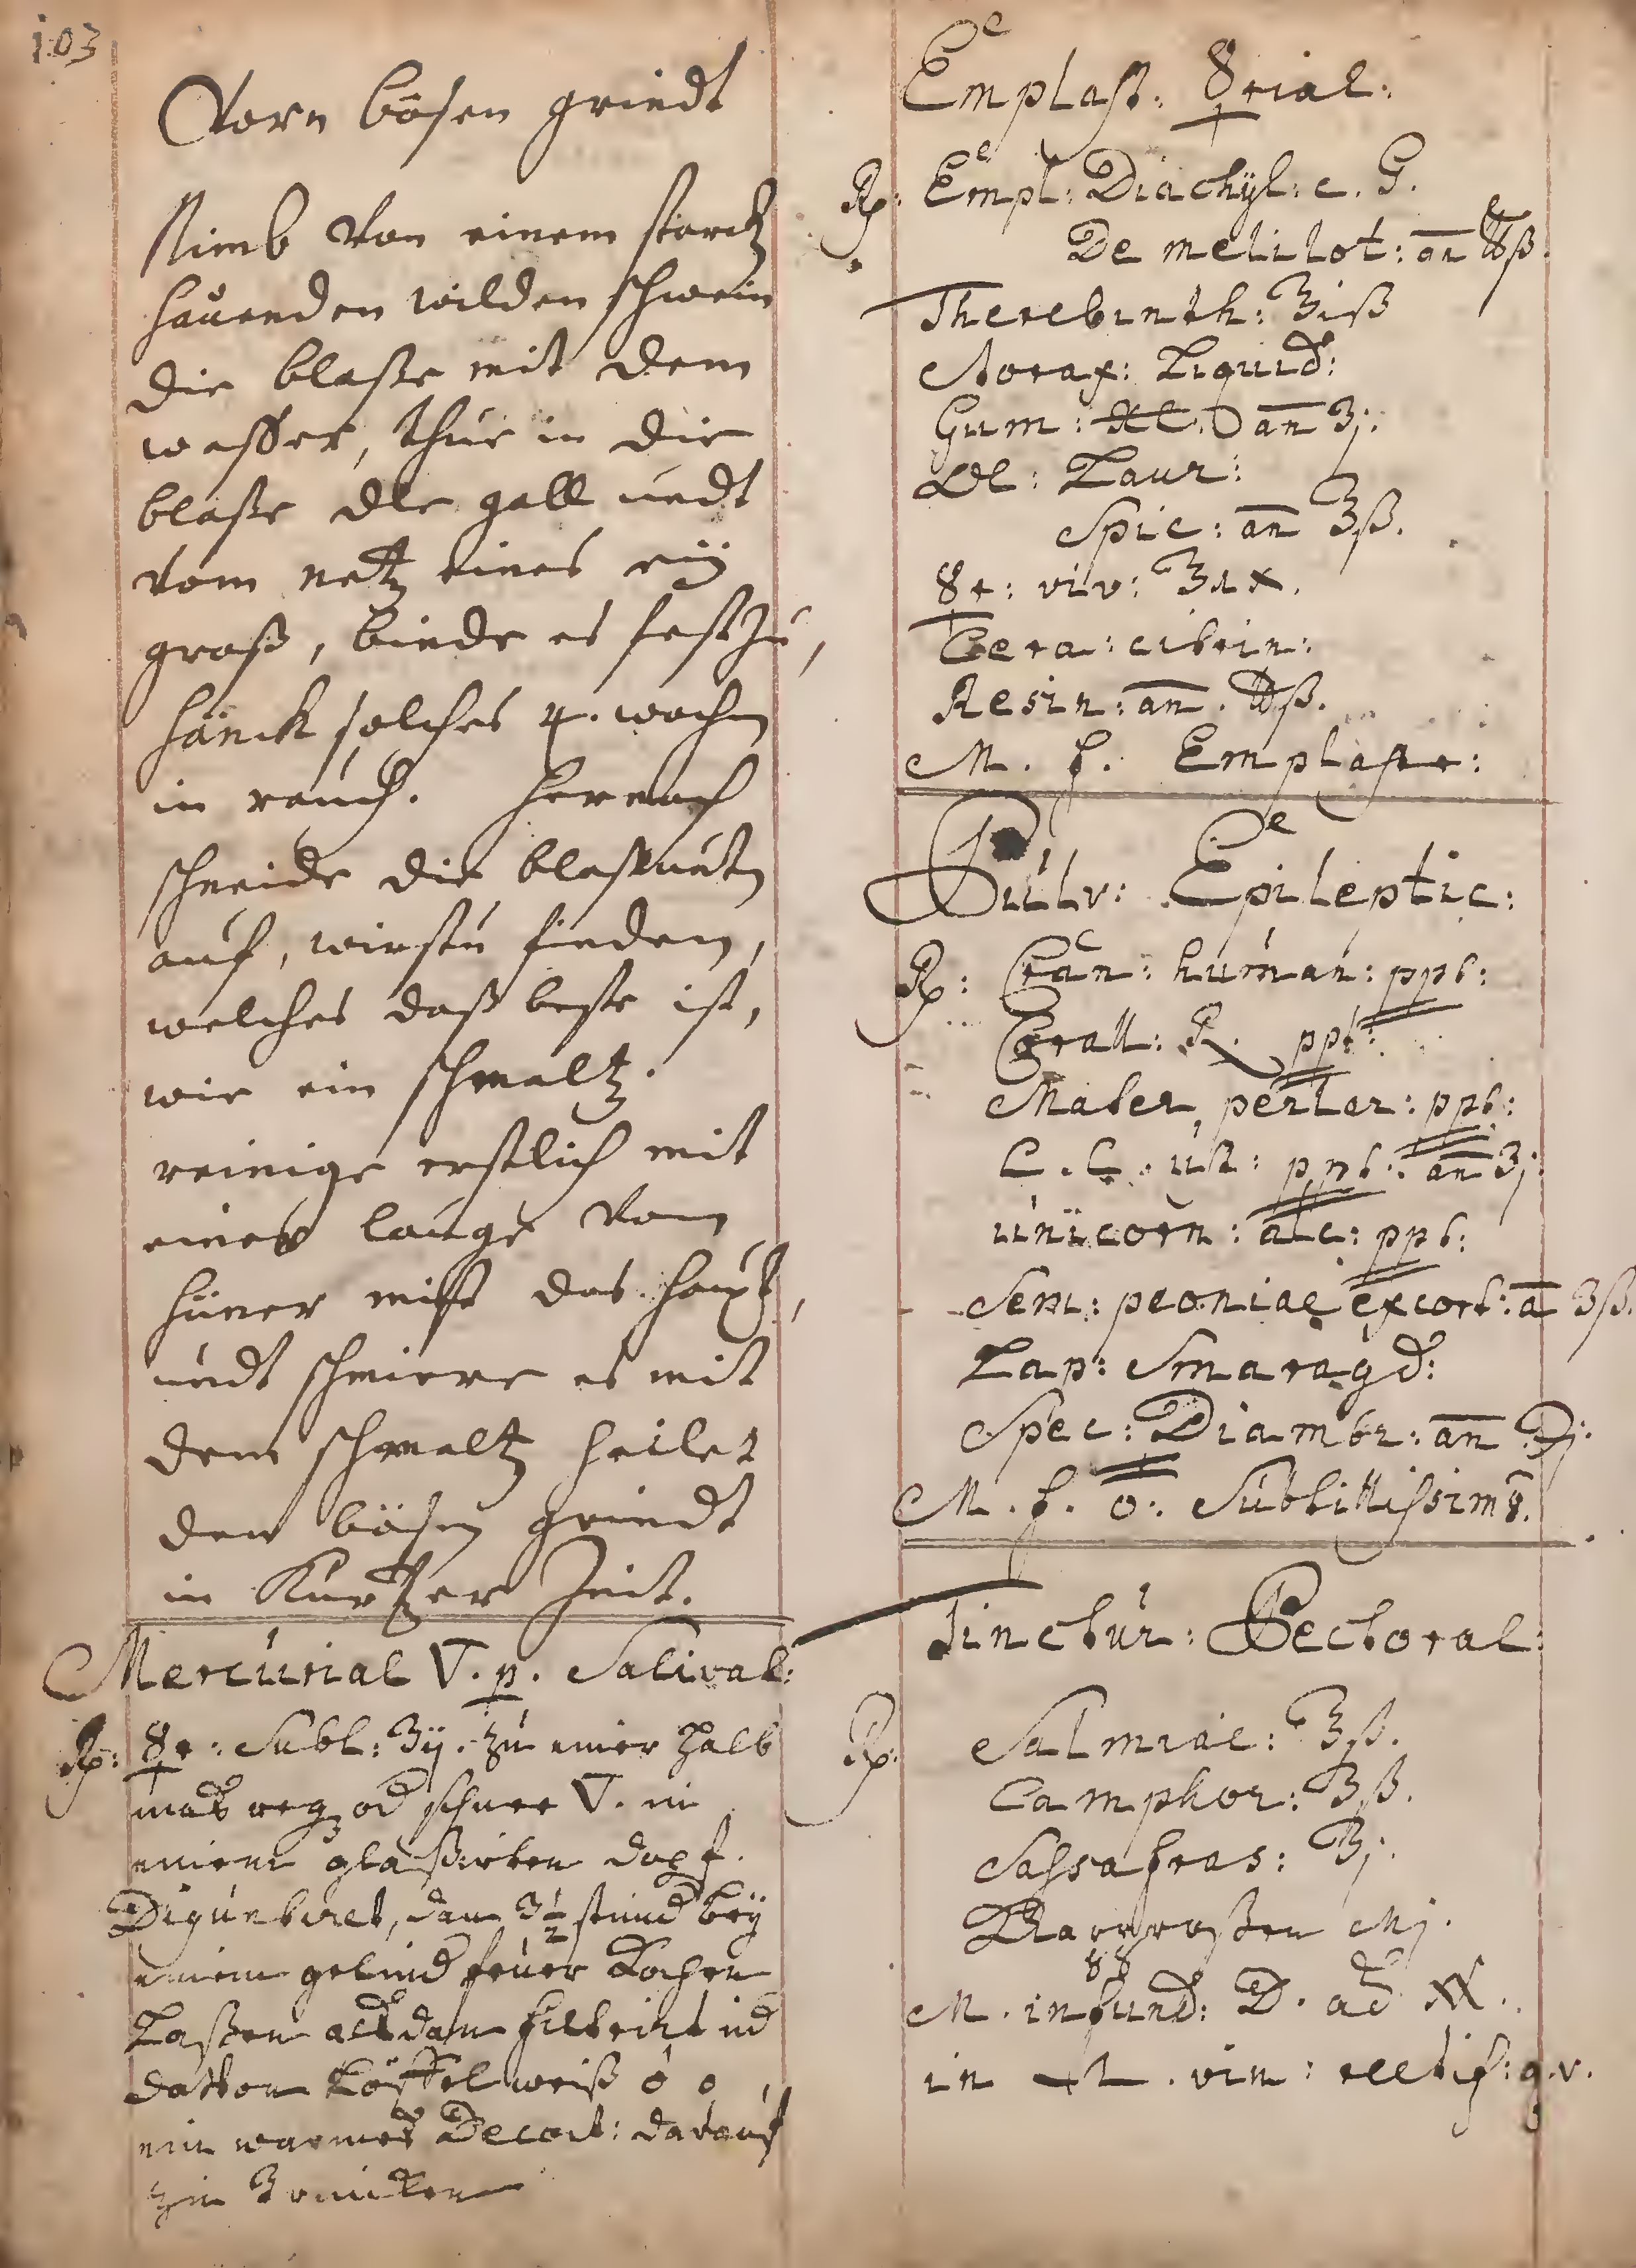 103
Vorn bösen griedt
Nimb von einem starck
hauenden wilden schwein
die blaße mit dem
waßer, thue in die
blaße die gall undt
vom netz eines eÿ
groß, binde es fest zu,
hänck solches 4. wochen
in rauch. Hernach
schneide die blaß unten
auf, wirstu finden,
welches daß beste ist,
wie ein schmaltz.
reinige erstlich mit
einer lauge von
hüner mist das haupt,
undt schmiere es mit
dem schmaltz heilet
den bösen griedt
in Kurtzer Zeit.
Mercurial ▽. p. Salival:
Rp: ☿: Subl: ʒij. zu einer halb
maß reg od schnee ▽. in
einem glaßirten dopf.
Digeriret, dan 3½ stund beÿ
einem gelind feuer Kochen
Laßen alsdan filtrirt ud
davon Löffel weiß
ein warmes Decoct: darauf
zu trincken
Emplast: ☿rial:
Rp: Empl: Diachÿl: c. G.
De melilot: an ℔ß.
Therebinth: ℥iß
Storax: Liquid:
Gum: an ʒj.
Ol: Laur:
Spic: an ℥ß.
☿: viv: ℥ix.
Cera: citrin:
Resin: an. ℔ß.
M. f. Emplastr:
Pulv: Epileptic:
Rp: Cran: human: ppt:
Corall: R. ppt:
Mater perlar: ppt:
C. C. ust: ppt: an ʒj.
unicorn: ppt:
Sem: peoniae excort: a ʒß.
Lap: Smaragd:
Spec: Diambr: an ℈j.
M. f. Subtilissimg.
Tinctur: Pectoral:
Rp: Salmiac: ℥ß.
Camphor: ʒß.
Sassafras: ʒj.
Mj.
M. infund: D. ad
in vin: rectif: q.v.